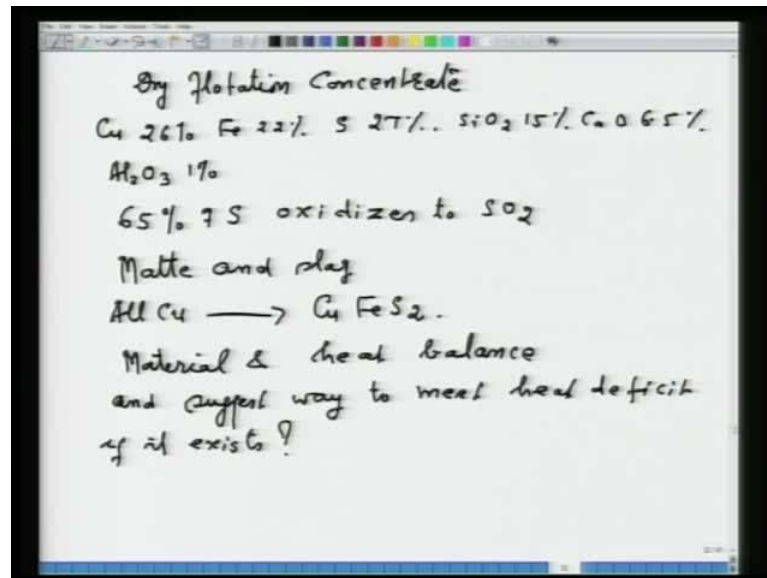 Dry flotation Concentrate
Cu 26% Fe 22%. S 27%.. SiO2 15%. Ca O 6.5%.
Al2O3 1%
65% of S oxidizes to SO2
Matte and slag
All Cu → Cu Fe S2.
Material & heat balance
and suggest way to meet heat deficit
if it exists?